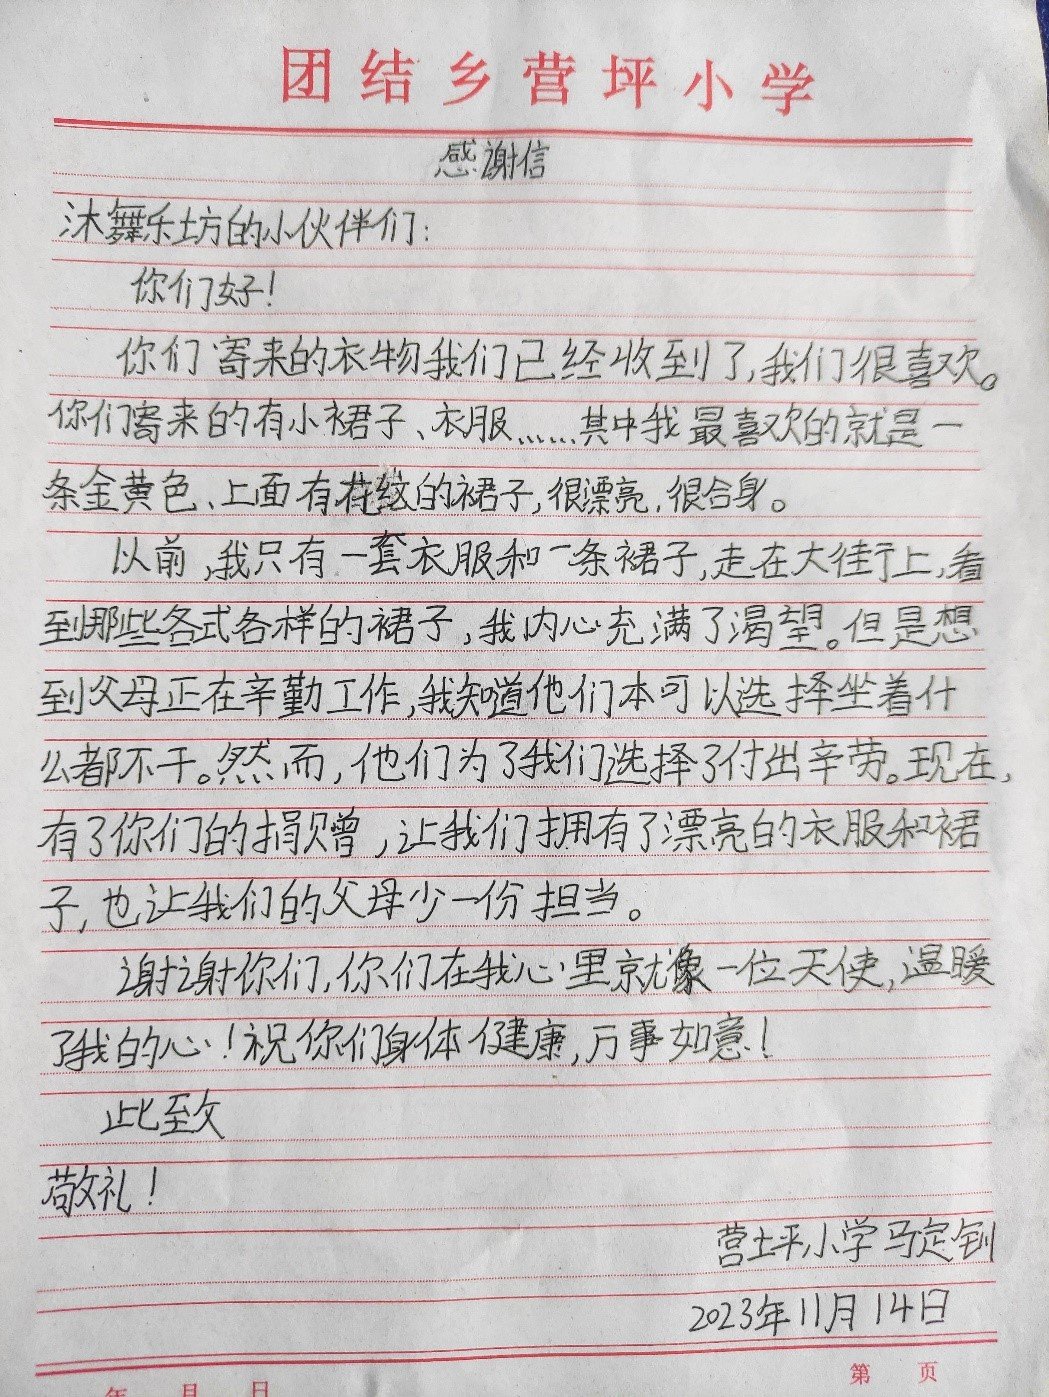 团结乡营坪小学
感谢信
沐舞乐坊的小伙伴们:
你们好!
你们寄来的衣物我们已经收到了,我们很喜欢。
你们寄来的有小裙子、衣服……其中我最喜欢的就是一
条金黄色、上面有花纹的裙子,很漂亮,很合身。
以前,我只有一套衣服和一条裙子,走在大街上,看
到那些各式各样的裙子,我内心充满了渴望。但是想
到父母正在辛勤工作,我知道他们本可以选择坐着什
么都不干。然而,他们为了我们选择了付出辛劳。现在,
有了你们的捐赠,让我们拥有了漂亮的衣服和裙
子,也让我们的父母少一份担当。
谢谢你们,你们在我心里就像一位天使,温暖
了我的心!祝你们身体健康,万事如意!
此致
敬礼!
营坪小学马定钊
2023年11月14日
第 页
年 月 日